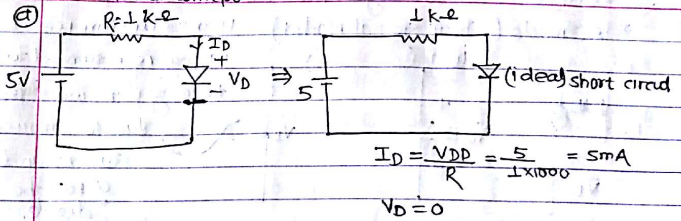 a
R=1 k Ω
1 k Ω
ID
+
5V
VD ⇒
-
5
(ideal) short circuit
ID = VDD / R = 5 / 1×1000 = 5mA
VD = 0